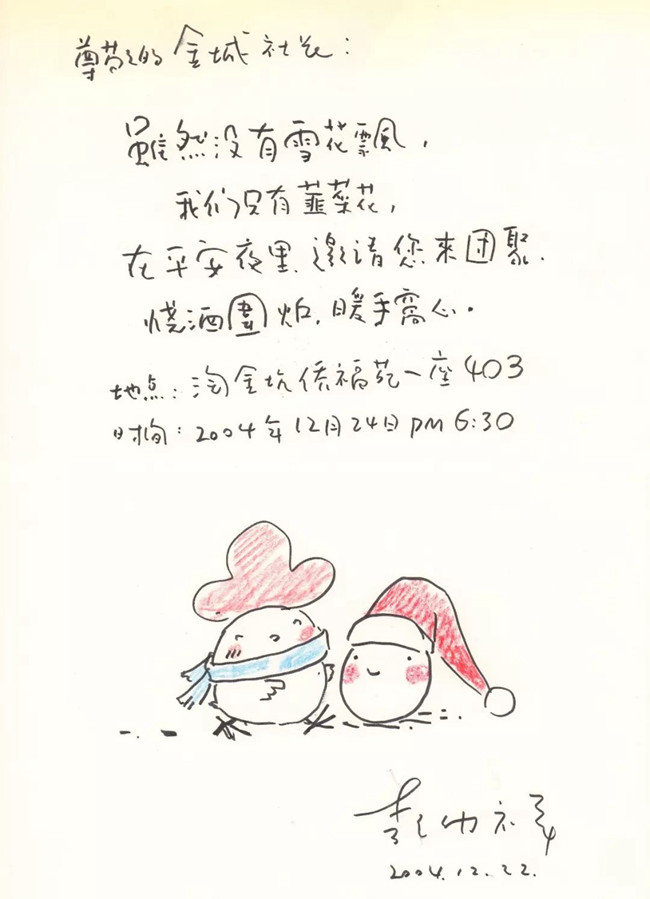 尊敬的金城社长:
雖然没有雪花飄,
我们只有韮菜花,
在平安夜里,邀请您来团聚.
烧酒圍炉,暖手窝心.
地点:淘金坑侨福苑一座403
时间:2004年12月24日 pm 6:30
2004.12.22.